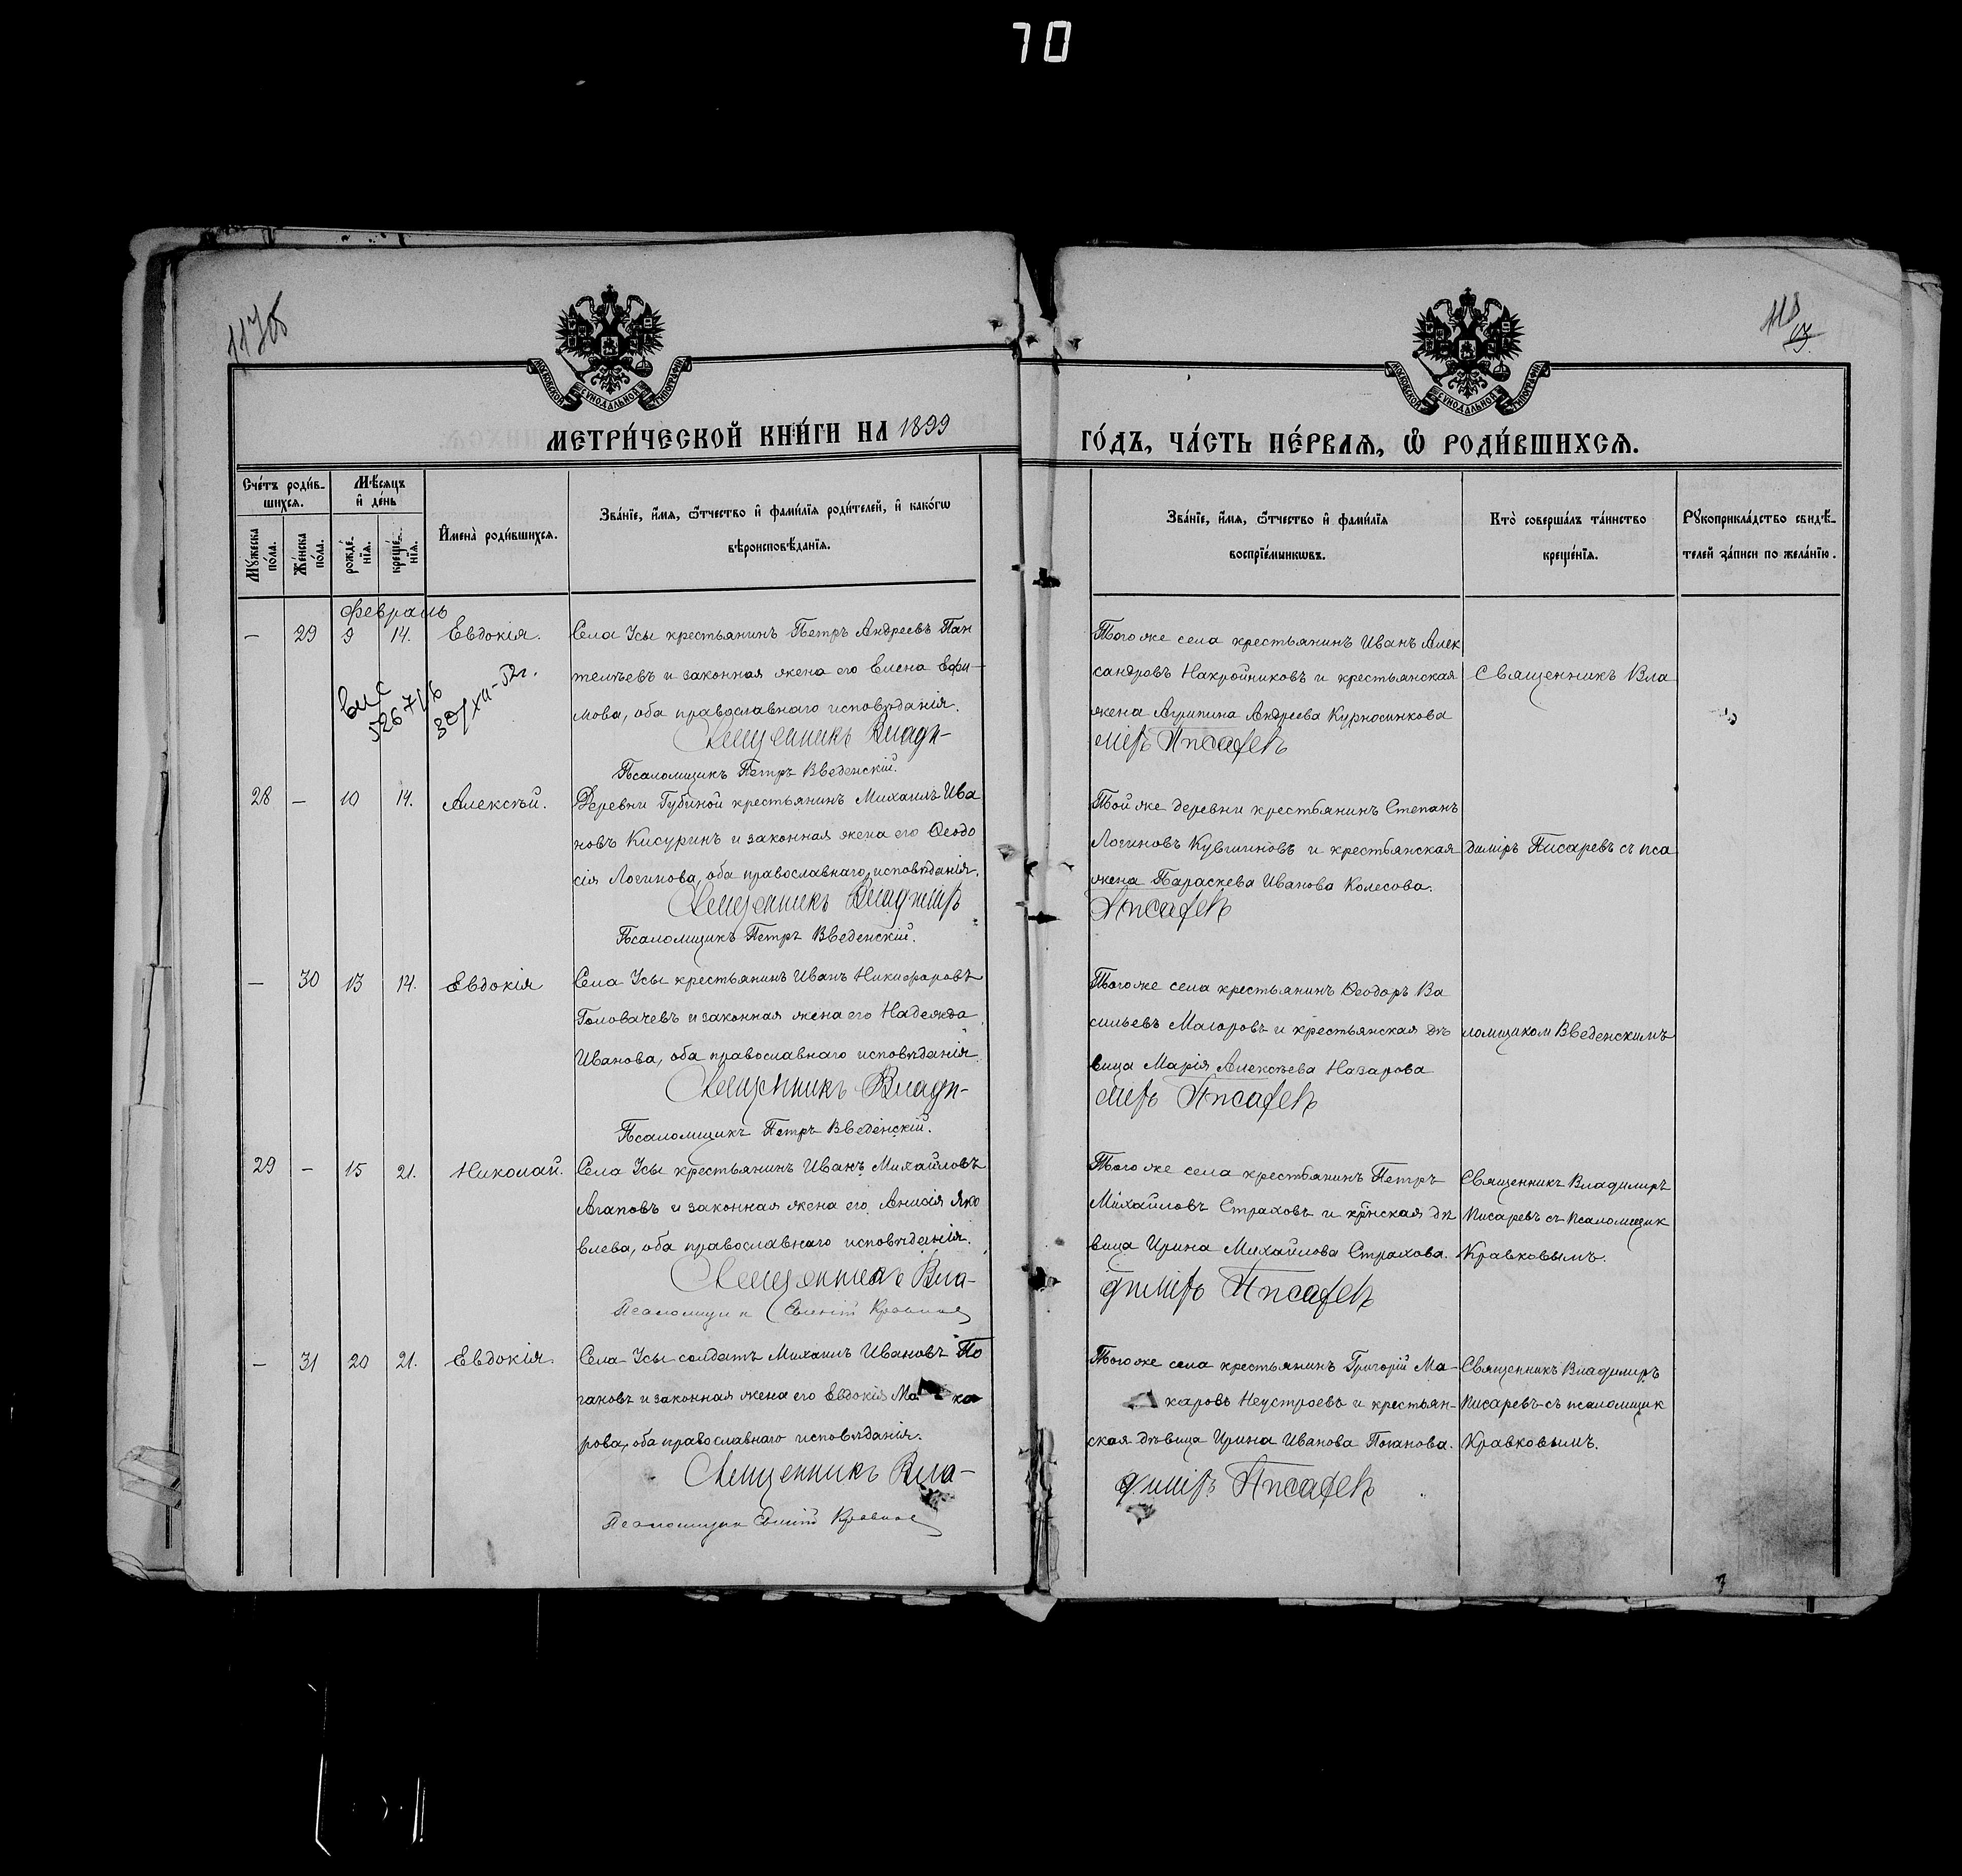 70
118
МОСКОВСКОЙ СѴНОДАЛЬНОЙ ТИПОГРАФІИ
МОСКОВСКОЙ СѴНОДАЛЬНОЙ ТИПОГРАФІИ
МЕТРИ́ЧЕСКОЙ КНИ́ГИ НА 1899
ГО́ДЪ, ЧА́СТЬ ПЕ́РВАѦ, Ѽ РОДИ́ВШИХСѦ.
Сче́тъ роди́в-
шихсѧ.
Мꙋ́жеска по́ла.
Же́нска по́ла.
Мѣ́сѧцъ
и҆ де́нь
рожде́-
нїѧ.
креще́-
нїѧ.
И҆мена̀ роди́вшихсѧ.
Зва́нїе, и҆́мѧ, ѻ҆́тчество и҆ фами́лїѧ роди́телей, и҆ како́гѡ
вѣроисповѣ́данїѧ.
Зва́нїе, и҆́мѧ, ѻ҆́тчество и҆ фами́лїѧ
воспрїе́мникѡвъ.
Кто̀ соверша́лъ та́инство
креще́нїѧ.
Рꙋкоприкла́дство свидѣ́-
телей за́писи по жела́нїю.
Февраль
— 29 9 14. Евдокія.
Села Усы крестьянинъ Петръ Андреевъ Пан
телѣевъ и законная жена его Елена Ефи-
мова, оба православнаго исповѣданія.
Священникъ Влади-
Псаломщикъ Петръ Введенскій.
Того же села крестьянинъ Иванъ Алек
сандровъ Накройниковъ и крестьянская
жена Агрипина Андреева Курносинкова
міръ Писаревъ
Священникъ Вла
28 — 10 14. Алексѣй.
Деревни Губиной крестьянинъ Михаилъ Ива
новъ Кисуринъ и законная жена его Ѳеодо
сія Логинова, оба православнаго исповѣданія.
Священникъ Владиміръ
Псаломщикъ Петръ Введенскій.
Той же деревни крестьянинъ Степанъ
Логиновъ Кувшиновъ и крестьянская
жена Параскева Иванова Колесова.
Писаревъ
диміръ Писаревъ съ пса
— 30 13 14. Евдокія
Села Усы крестьянинъ Иванъ Никифоровъ
Головачевъ и законная жена его Надежда
Иванова, оба православнаго исповѣданія.
Священникъ Влади-
Псаломщикъ Петръ Введенскій.
Того же села крестьянинъ Ѳеодоръ Ва
сильевъ Маіоровъ и крестьянская дѣ
вица Марія Алексѣева Назарова
міръ Писаревъ
ломщиком Введенскимъ
29 — 15 21. Николай.
Села Усы крестьянинъ Иванъ Михайловъ
Агаповъ и законная жена его Анисія Яко
влева, оба православнаго исповѣданія.
Священникъ Вла-
Того же села крестьянинъ Петръ
Михайловъ Страховъ и крнская дѣ
вица Ирина Михайлова Страхова.
диміръ Писаревъ
Священникъ Владимиръ
Писаревъ съ псаломщик
Кравковымъ.
— 31 20 21. Евдокія.
Села Усы солдатъ Михаилъ Ивановъ По
гановъ и законная жена его Евдокія Ма ка
рова, оба православнаго исповѣданія.
Священникъ Вла-
Того же села крестьянинъ Григорій Ма-
каровъ Неустроевъ и крестьян-
ская дѣвица Ирина Иванова Поганова.
диміръ Писаревъ
Священникъ Владимиръ
Писаревъ съ псаломщик
Кравковымъ.